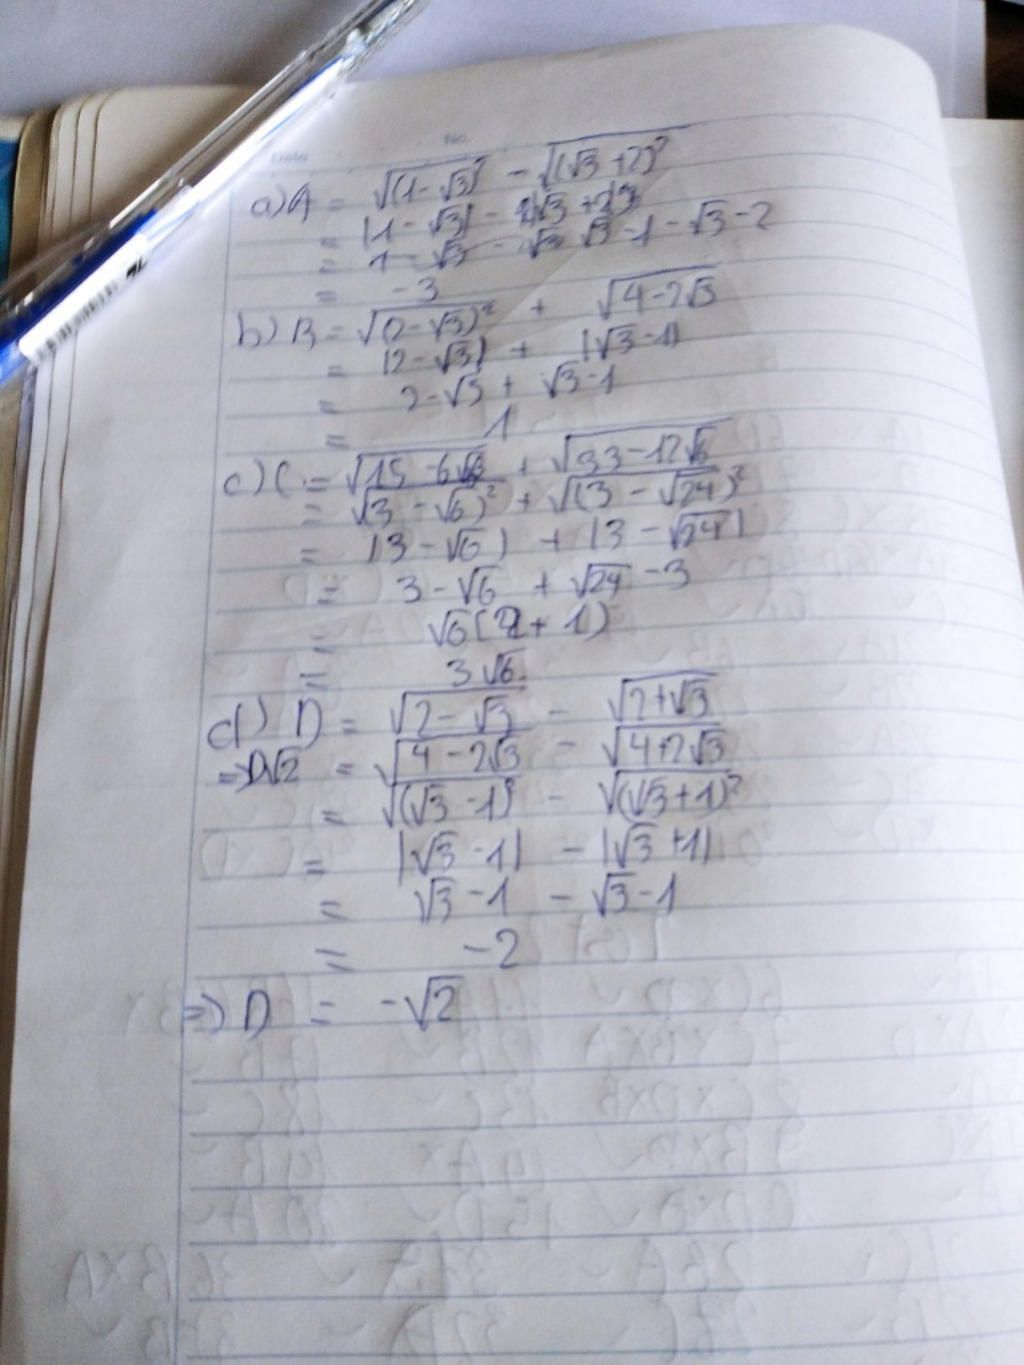 Date No.
a) A = √(1-√3)² - √(√3+2)²
= |1-√3| - |√3+2|
= √3-1-√3-2
= -3
b) B = √(2-√3)² + √4-2√3
= |2-√3| + |√3-1|
= 2-√3 + √3-1
= 1
c) C = √15-6√6 + √33-12√6
= √(3-√6)² + √(3-√24)²
= |3-√6| + |3-√24|
= 3-√6 + √24-3
= √6(2+1)
= 3√6
d) D = √2-√3 - √2+√3
=> D√2 = √4-2√3 - √4+2√3
= √(√3-1)² - √(√3+1)²
= |√3-1| - |√3+1|
= √3-1 - √3-1
= -2
=> D = -√2